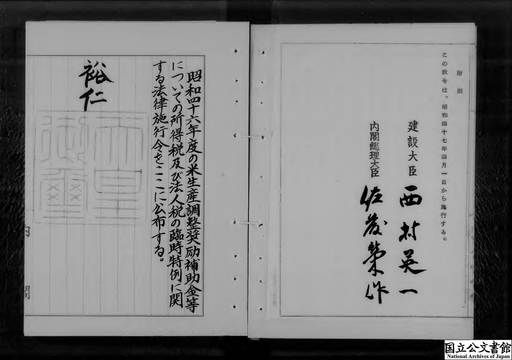 附則
この政令は、昭和四十七年四月一日から施行する。
建設大臣 西村英一
内閣総理大臣 佐藤榮作
昭和四十六年度の米生産調整奨励補助金等
についての所得税及び法人税の臨時特例に関
する法律施行令をここに公布する。
裕仁
天皇
御璽
国立公文書館
National Archives of Japan